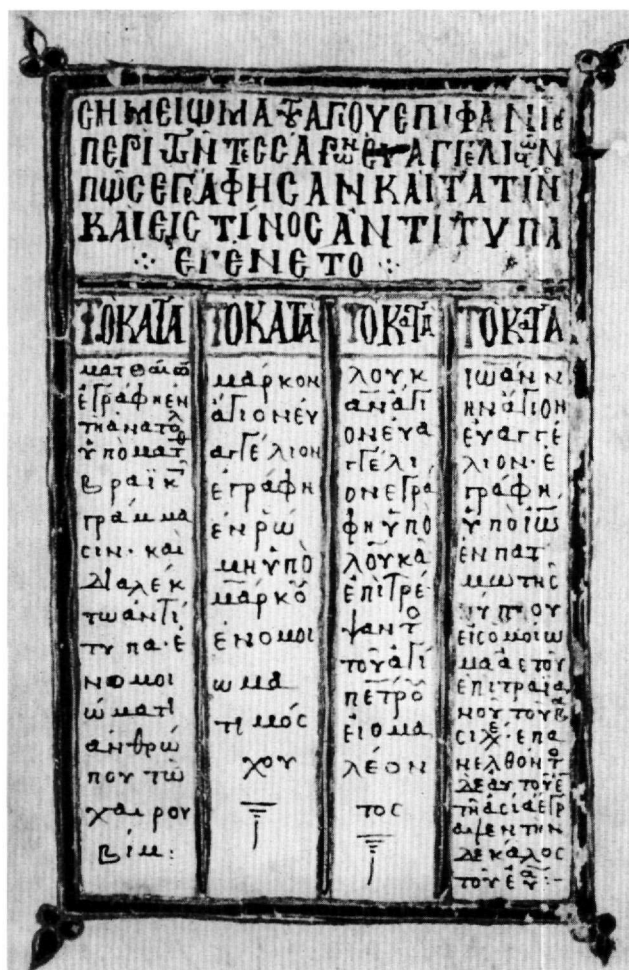 CΗΜΕΙΩΜΑ ΤΟΥ ΑΓΙΟΥ ΕΠΙΦΑΝΙΟΥ
ΠΕΡΙ ΤΩΝ ΤΕCCΑΡΩΝ ΕΥΑΓΓΕΛΙΩΝ
ΠΩC ΕΓΡΑΦΗCΑΝ ΚΑΙ ΤΑ ΤΙΝ
ΚΑΙ ΕΙC ΤΙΝΟC ΑΝΤΙΤΥΠΑ
ΕΓΕΝΕΤΟ
ΤΟ ΚΑΤΑ
ματθαῖον
ἐγράφη ἐν
τῆ ἀνατολ
ὑπὸ ματθ
βραϊκ
γράμμα
σιν· καὶ
διαλέκ
τω ἀντί
τυπα· ἐ
ν ομοι
ώματι
ἀνθρώ
που τῶ
χαιρου
βίμ:
ΤΟ ΚΑΤΑ
μάρκον
ἅγιον εὐ
αγγέλιον
ἐγράφη
ἐν ρώ
μη ὑπὸ
μάρκου
ἐν ομοι
ωμα
τι μόσ
χου
ΤΟ ΚΑΤΑ
λουκ
ᾶν ἅγι
ον ευα
γγέλι
ον εγρα
φη ὑπὸ
λουκᾶ
ἐπιτρέ
ψαντο
τοῦ ἁγί
πέτρου
εἰ ομα
λέον
τος
ΤΟ ΚΑΤΑ
ἰωάνν
ην ἅγιον
εὐαγγέ
λιον· ἐ
γράφη
ὑπὸ ἰω
ἐν πατ
μω της
εἰς ομοίω
μα ἀετοῦ
ἐπι τραϊα
νου του β
ἐπα
νελθόντ
τη ἀσία ἐγρ
αψεν την
δε κάλος
τοῦ εὐα: